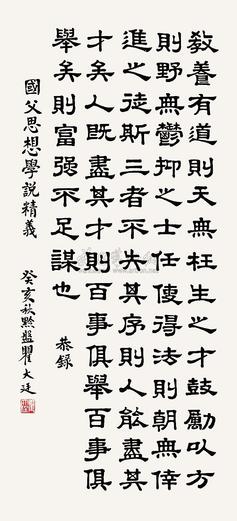 教養有道則天無枉生之才鼓勵以方
則野無鬱抑之士任使得法則朝無倖
進之徒斯三者不失其序則人能盡其
才矣人既盡其才則百事俱舉百事俱
舉矣則富强不足謀也 恭録
國父思想學說精義 癸亥秋黔盤瞿大廷